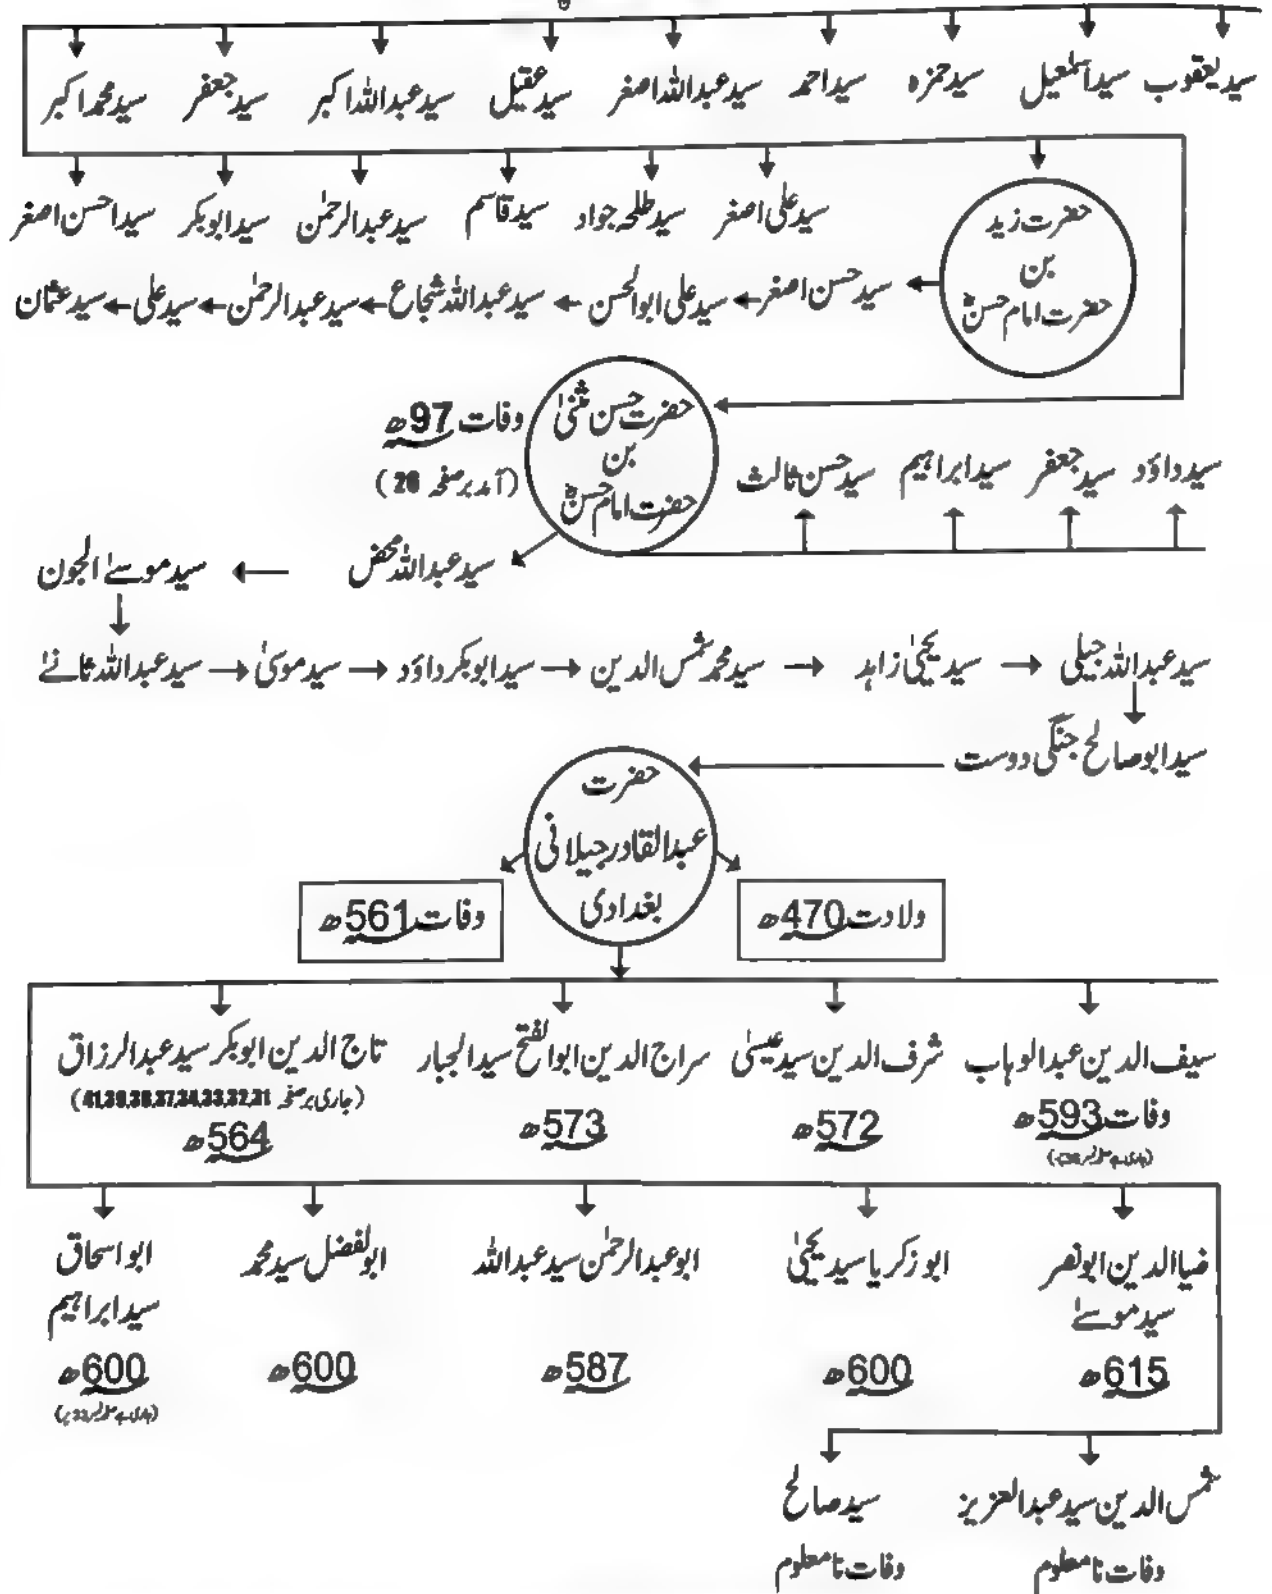 سید یعقوب سید اسمٰعیل سید حمزہ سید احمد سید عبداللہ اصغر سید عقیل سید عبداللہ اکبر سید جعفر سید محمد اکبر
سید علی اصغر سید طلحہ جواد سید قاسم سید عبدالرحمٰن سید ابوبکر سید احسن اصغر
حضرت زید
بن
حضرت امام حسنؓ
سید حسن اصغر سید علی ابوالحسن سید عبداللہ شجاع سید عبدالرحمٰن سید علی سید عثمان
حضرت حسن مثنیٰ
بن
حضرت امام حسنؓ
وفات 97ھ
(آمد بر صفحہ 26)
سید داؤد سید جعفر سید ابراہیم سید حسن ثالث
سید عبداللہ محض سید موسےٰ الجون
سید عبداللہ ثانےٰ سید موسیٰ سید ابوبکر داؤد سید محمد شمس الدین سید یحییٰ زاہد سید عبداللہ جیلی
سید ابو صالح جنگی دوست
حضرت
عبدالقادر جیلانی
بغدادی
ولادت 470ھ
وفات 561ھ
سیف الدین عبدالوہاب شرف الدین سید عیسیٰ سراج الدین ابوالفتح سید الجبار تاج الدین ابوبکر سید عبدالرزاق
(جاری بر صفحہ 31,32,33,34,37,38,39,41)
وفات 593ھ 572ھ 573ھ 564ھ
ضیاالدین ابونصر ابو زکریا سید یحییٰ ابو عبدالرحمٰن سید عبداللہ ابوالفضل سید محمد ابو اسحاق
سید موسےٰ سید ابراہیم
615ھ 600ھ 587ھ 600ھ 600ھ
شمس الدین سید عبدالعزیز سید صالح
وفات نامعلوم وفات نامعلوم